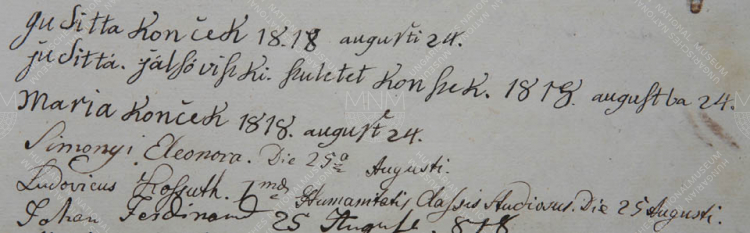 Juditta Konček 1818 augusti 24.
juditta. jálsóviski. születet Konsek. 1818. augustba 24.
Maria Konček 1818. august 24.
Simonyi Eleonora. Die 25a Augusti.
Ludovicus Kossuth. Imae Humanitatis Classis Studiosus. Die 25 Augusti.
Johan Ferdinand 25 August. 818